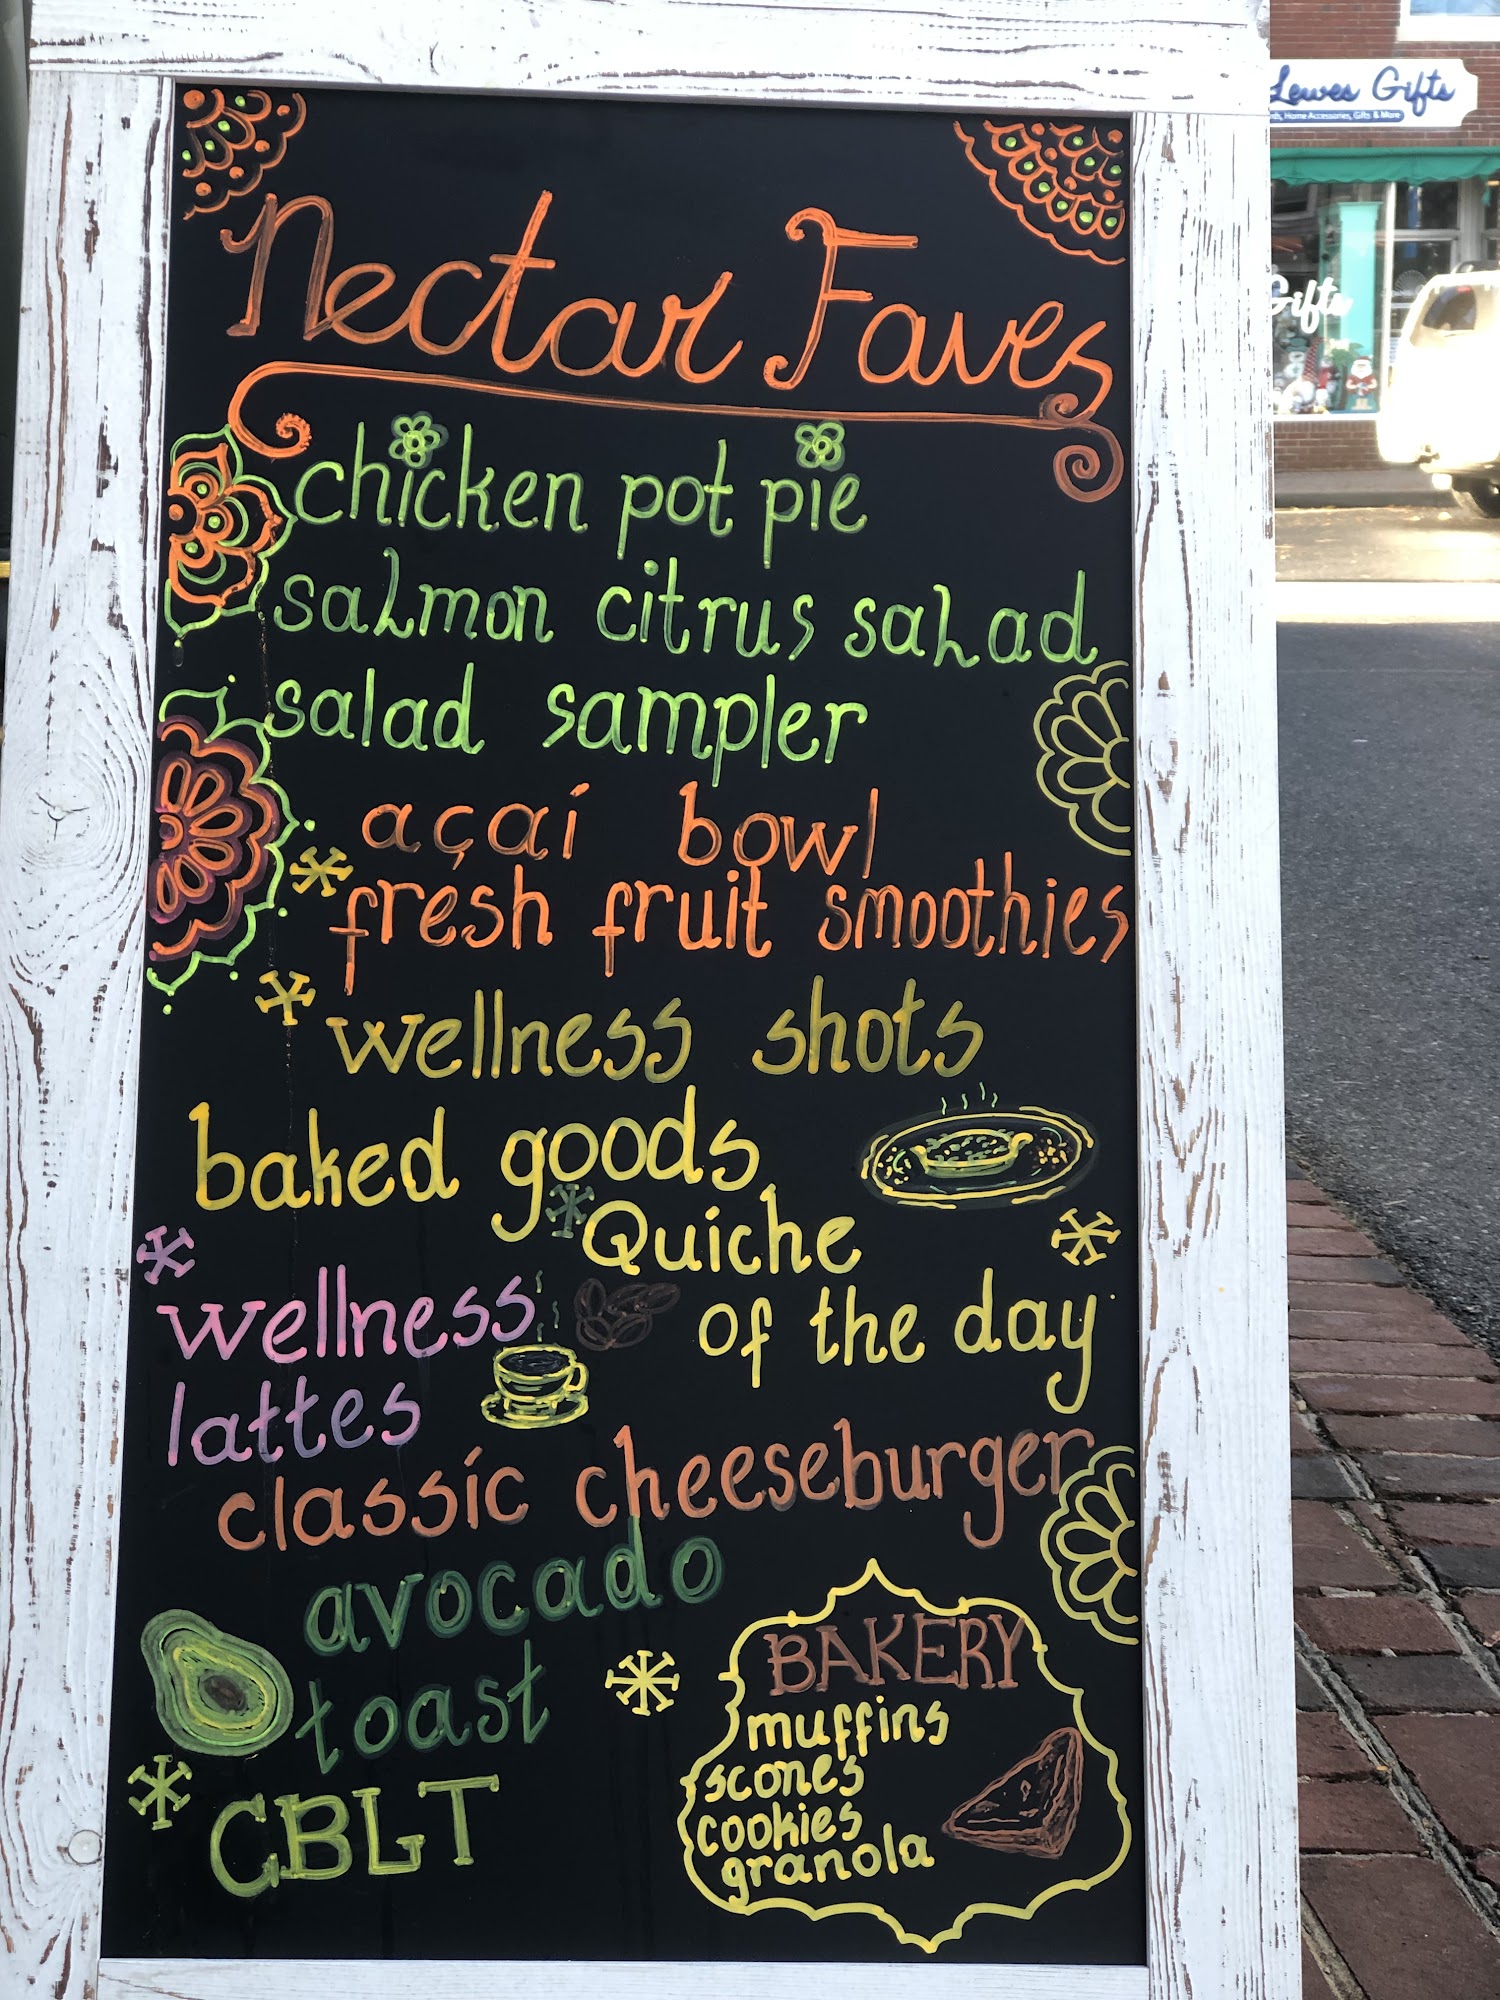 Lewes Gifts
Home Accessories, Gifts & More
Gifts
Nectar Faves
chicken pot pie
salmon citrus salad
salad sampler
açaí bowl
fresh fruit smoothies
wellness shots
baked goods
Quiche
of the day
wellness
lattes
classic cheeseburger
avocado
toast
CBLT
BAKERY
muffins
scones
cookies
granola